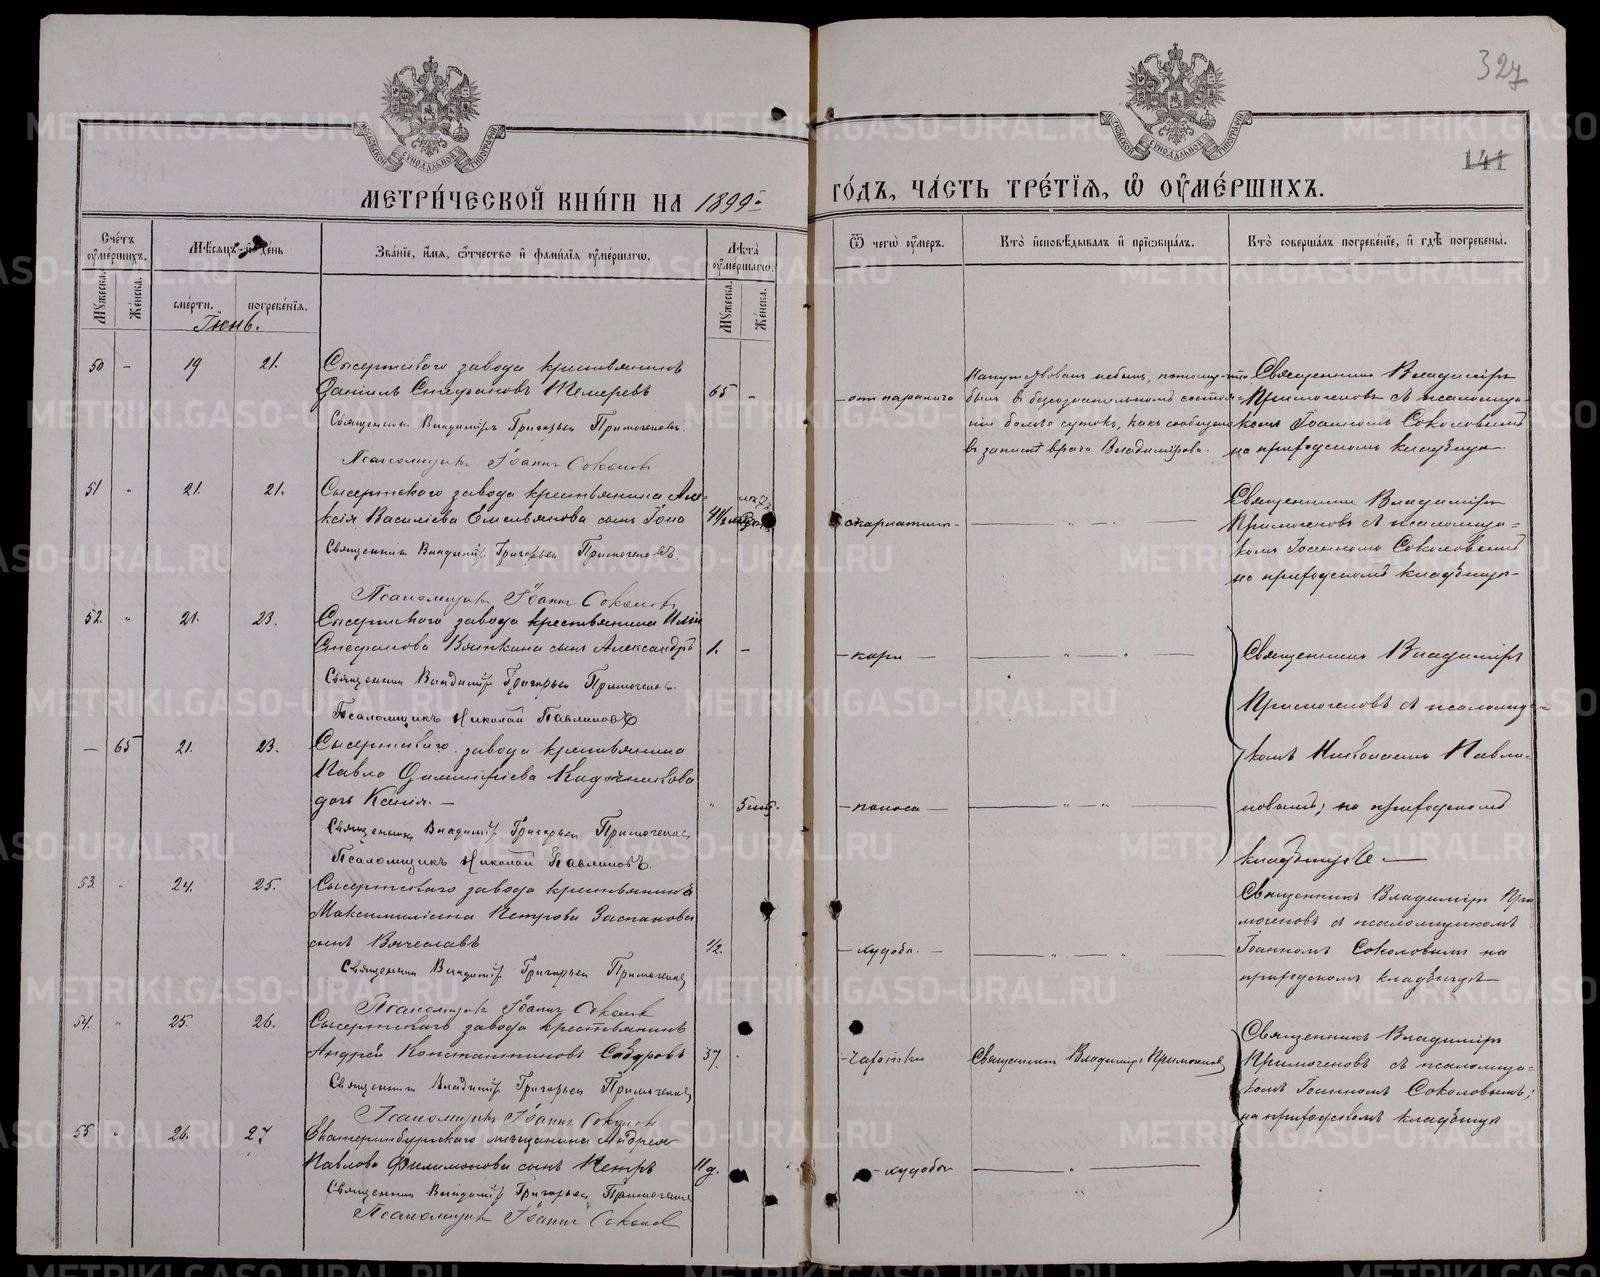 327
141
МОСКОВСКОЙ СѴНОДАЛЬНОЙ ТИПОГРАФІИ
МОСКОВСКОЙ СѴНОДАЛЬНОЙ ТИПОГРАФІИ
МЕТРИ́ЧЕСКОЙ КНИ́ГИ НА 1899 г.
ГО́ДЪ, ЧА́СТЬ ТРЕ́ТІЯ, Ѡ ОУМЕ́РШИХЪ.
Счетъ оумершихъ.
Мѣсяцъ и день
Званіе, имя, отчество и фамилія оумершаго.
Лѣта оумершаго.
Мужеска.
Женска.
смерти.
погребенія.
Мужеска.
Женска.
Ѿ чего оумеръ.
Кто исповѣдывалъ и пріобщалъ.
Кто совершалъ погребеніе, и гдѣ погребены.
Іюнь.
50 - 19 21. Сысертскаго завода крестьянинъ
Даніилъ Стефановъ Темеревъ 65 -
Священникъ Владиміръ Григорьев Примогеновъ.
Псаломщикъ Іоаннъ Соколовъ
от паралича
Напутствован небылъ, потому что
былъ в безсознательномъ состоя-
ніи болѣе сутокъ, какъ сообщено
в запискѣ врача Владимірова.
Священникъ Владиміръ
Примогеновъ съ псаломщи-
комъ Іоанномъ Соколовымъ
на приходскомъ кладбищѣ
51 " 21. 21. Сысертскаго завода крестьянина Але-
ксія Василіева Емельянова сынъ Іона 4 1/2
Священникъ Владиміръ Григорьев Примогеновъ.
Псаломщикъ Іоаннъ Соколовъ
скарлатины
Священникъ Владиміръ
Примогеновъ съ псаломщи-
комъ Іоанномъ Соколовымъ
на приходскомъ кладбищѣ
52. " 21. 23. Сысертскаго завода крестьянина Иліи
Стефанова Вяткина сынъ Александръ 1. -
Священникъ Владиміръ Григорьев Примогеновъ.
Псаломщикъ Николай Павлиновъ
кори
Священникъ Владиміръ
Примогеновъ съ псаломщи-
комъ Николаемъ Павли-
новымъ; на приходскомъ
кладбищѣ
- 65 21. 23. Сысертскаго завода крестьянина
Павла Димитріева Кадочникова
дочь Ксенія. - " 5 мѣс.
Священникъ Владиміръ Григорьев Примогеновъ
Псаломщикъ Николай Павлиновъ.
поноса
53. " 24. 25. Сысертскаго завода крестьянина
Максимиліана Петрова Заспанова
сынъ Вячеславъ 1/2.
Священникъ Владиміръ Григорьев Примогеновъ
Псаломщикъ Іоаннъ Соколовъ
худобы
Священникъ Владиміръ При-
могеновъ съ псаломщикомъ
Іоанномъ Соколовымъ на
приходскомъ кладбищѣ
54. " 25. 26. Сысертскаго завода крестьянинъ
Андрей Константиновъ 37.
Священникъ Владиміръ Григорьев Примогеновъ
Псаломщикъ Іоаннъ Соколовъ
чахотки
Священникъ Владиміръ Примогеновъ
Священникъ Владиміръ
Примогеновъ съ псаломщи-
комъ Іоанномъ Соколовымъ;
на приходскомъ кладбищѣ
55 " 26. 27 Екатеринбургскаго мѣщанина Андрея
Павлова Филимонова сынъ Петръ 11 д.
Священникъ Владиміръ Григорьев Примогеновъ
Псаломщикъ Іоаннъ Соколовъ
худобы
METRIKI.GASO-URAL.RU